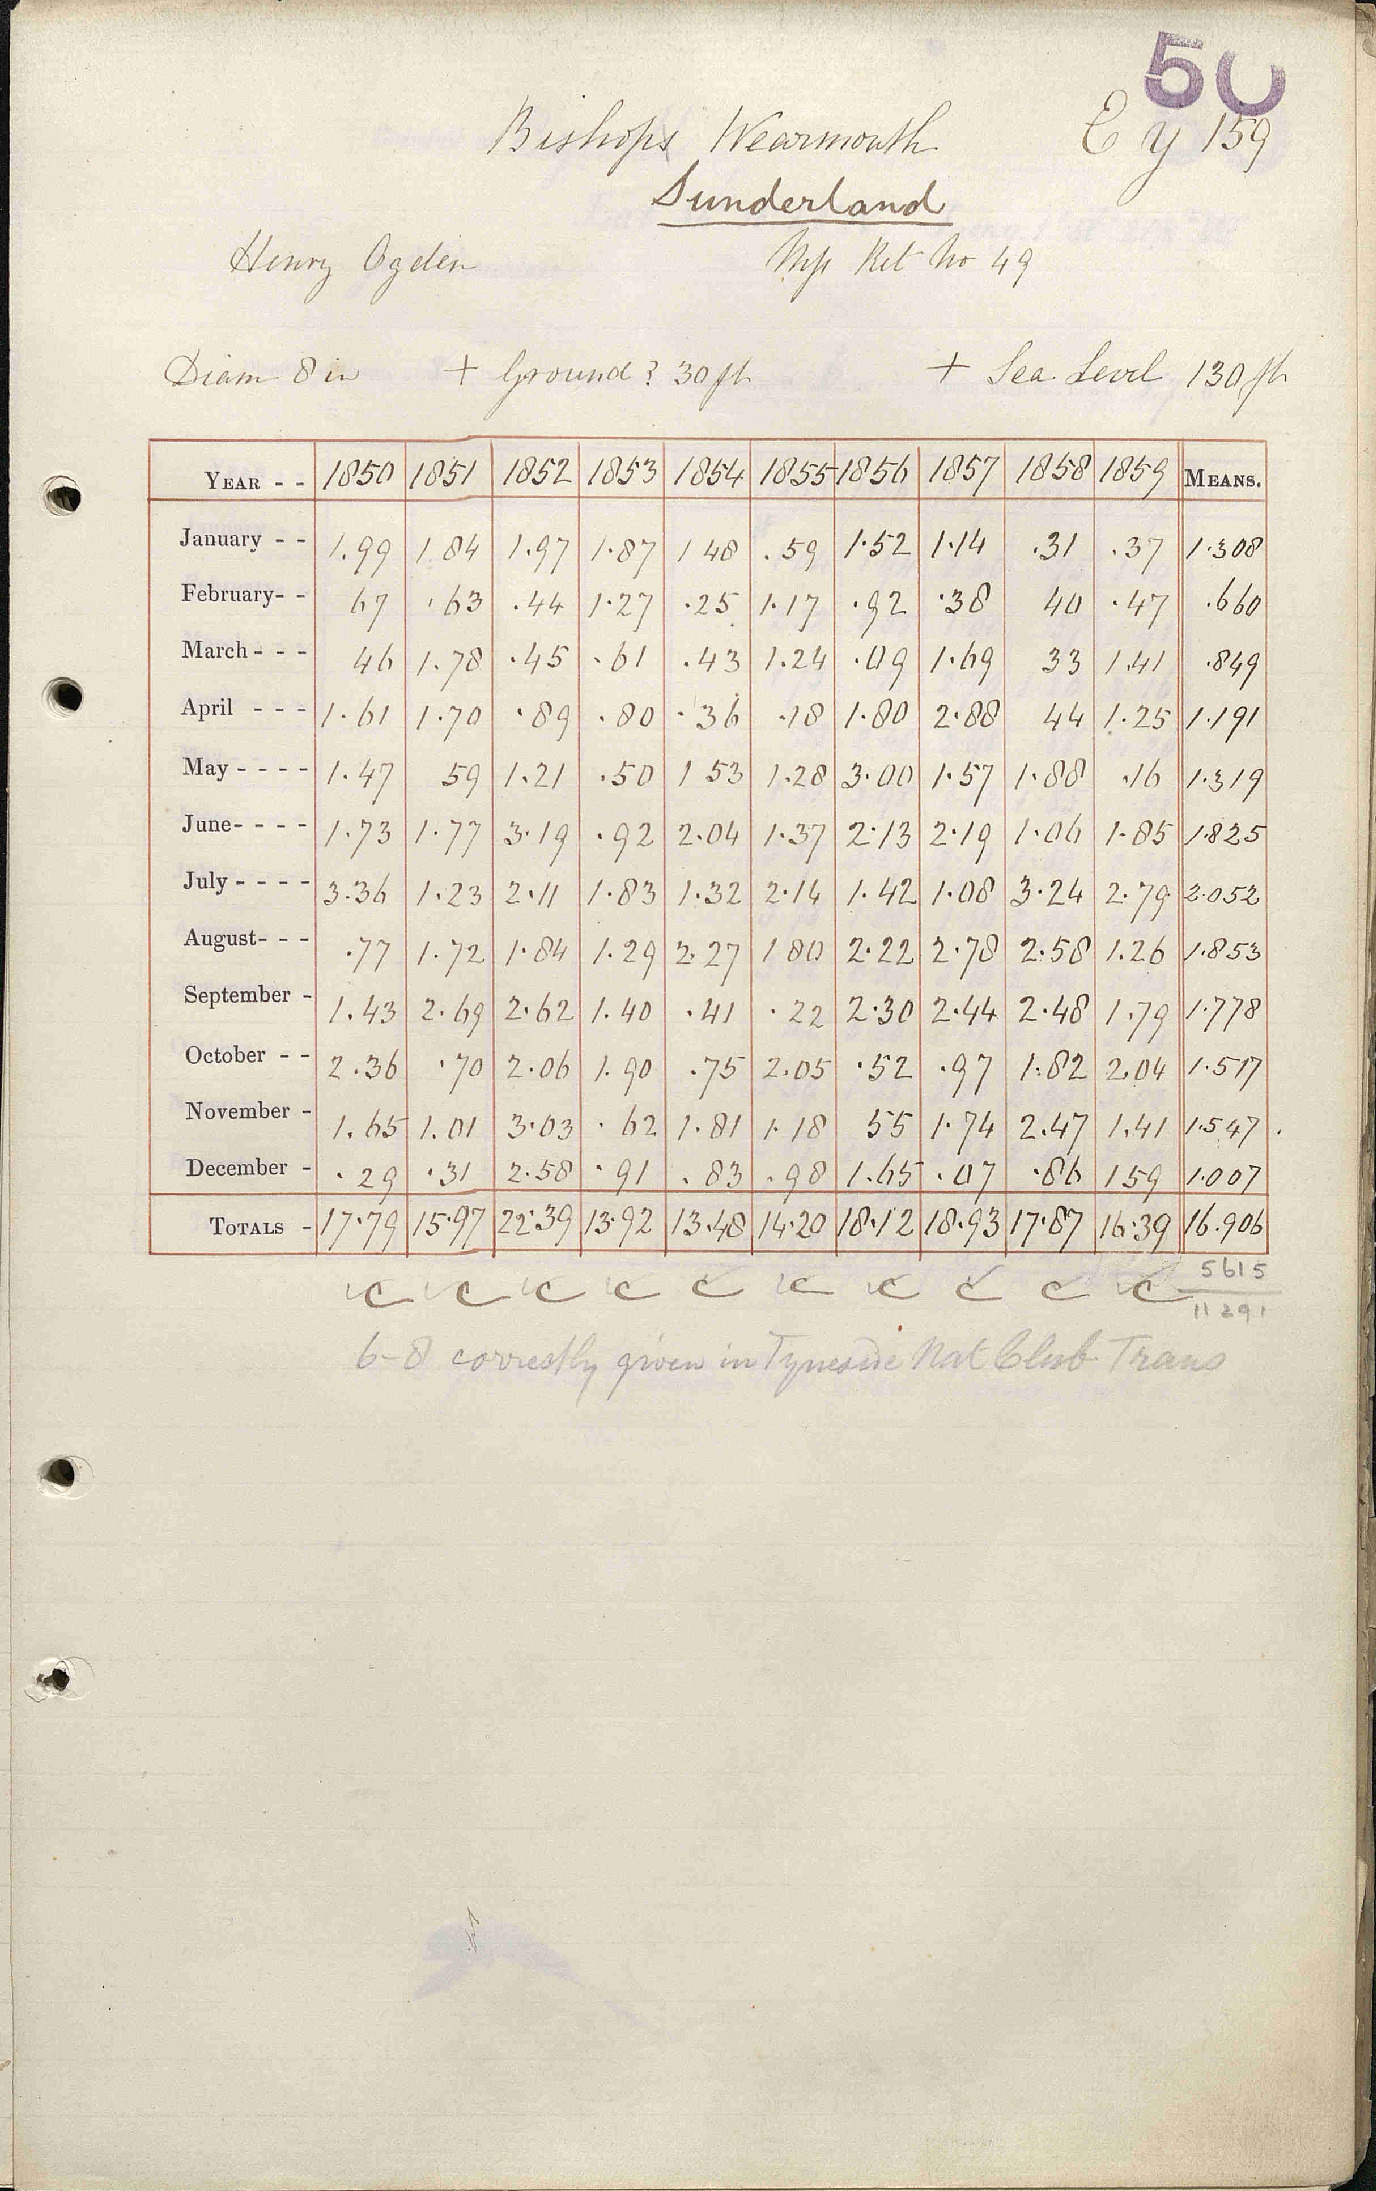 50
Bishops Wearmouth E y 159
Sunderland
Henry Ogden Ret No 49
Diam 8 in + Ground ? 30 ft + Sea Level 130 ft
YEAR - - 1850 1851 1852 1853 1854 1855 1856 1857 1858 1859 MEANS.
January - - 1.99 1.84 1.97 1.87 1 48 .59 1.52 1.14 .31 .37 1.308
February- - 67 .63 .44 1.27 .25 1.17 .92 .38 40 .47 .660
March - - - 46 1.78 .45 .61 .43 1.24 .09 1.69 33 1.41 .849
April - - - 1.61 1.70 .89 .80 .36 .18 1.80 2.88 44 1.25 1.191
May - - - - 1.47 59 1.21 .50 1 53 1.28 3.00 1.57 1.88 .16 1.319
June- - - - 1.73 1.77 3.19 .92 2.04 1.37 2.13 2.19 1.06 1.85 1.825
July - - - - 3.36 1.23 2.11 1.83 1.32 2.14 1.42 1.08 3.24 2.79 2.052
August- - - .77 1.72 1.84 1.29 2.27 1 80 2.22 2.78 2.58 1.26 1.853
September - 1.43 2.69 2.62 1.40 .41 .22 2.30 2.44 2.48 1.79 1.778
October - - 2.36 .70 2.06 1.90 .75 2.05 .52 .97 1.82 2.04 1.517
November - 1.65 1.01 3.03 .62 1.81 1.18 55 1.74 2.47 1.41 1.547
December - .29 .31 2.58 .91 .83 .98 1.65 .07 .86 1 59 1.007
TOTALS - 17.79 15.97 22.39 13.92 13.48 14.20 18.12 18.93 17.87 16.39 16.906
c c c c c c c c c c 5615
11 291
6-8 correctly given in Tyneside Nat Club Trans